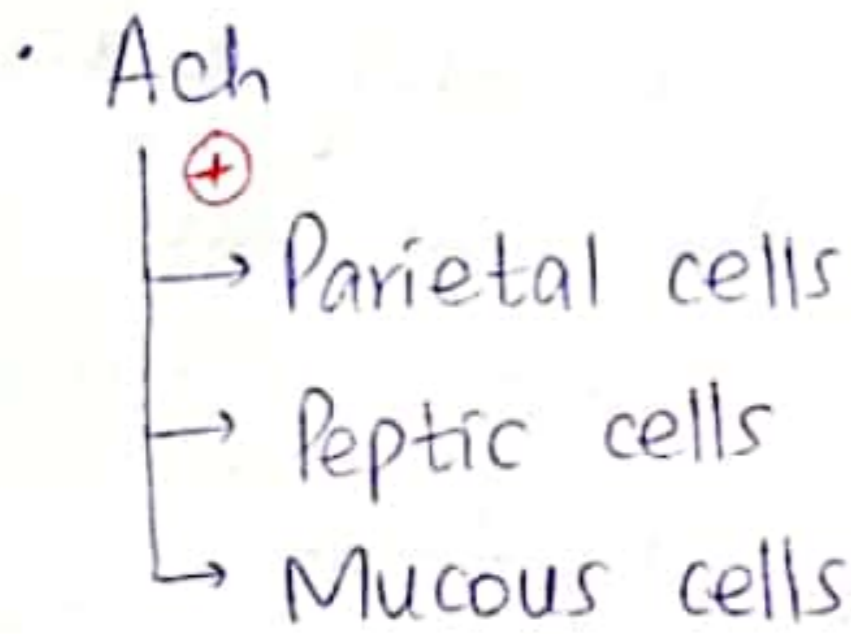 · Ach
+
→ Parietal cells
→ Peptic cells
→ Mucous cells